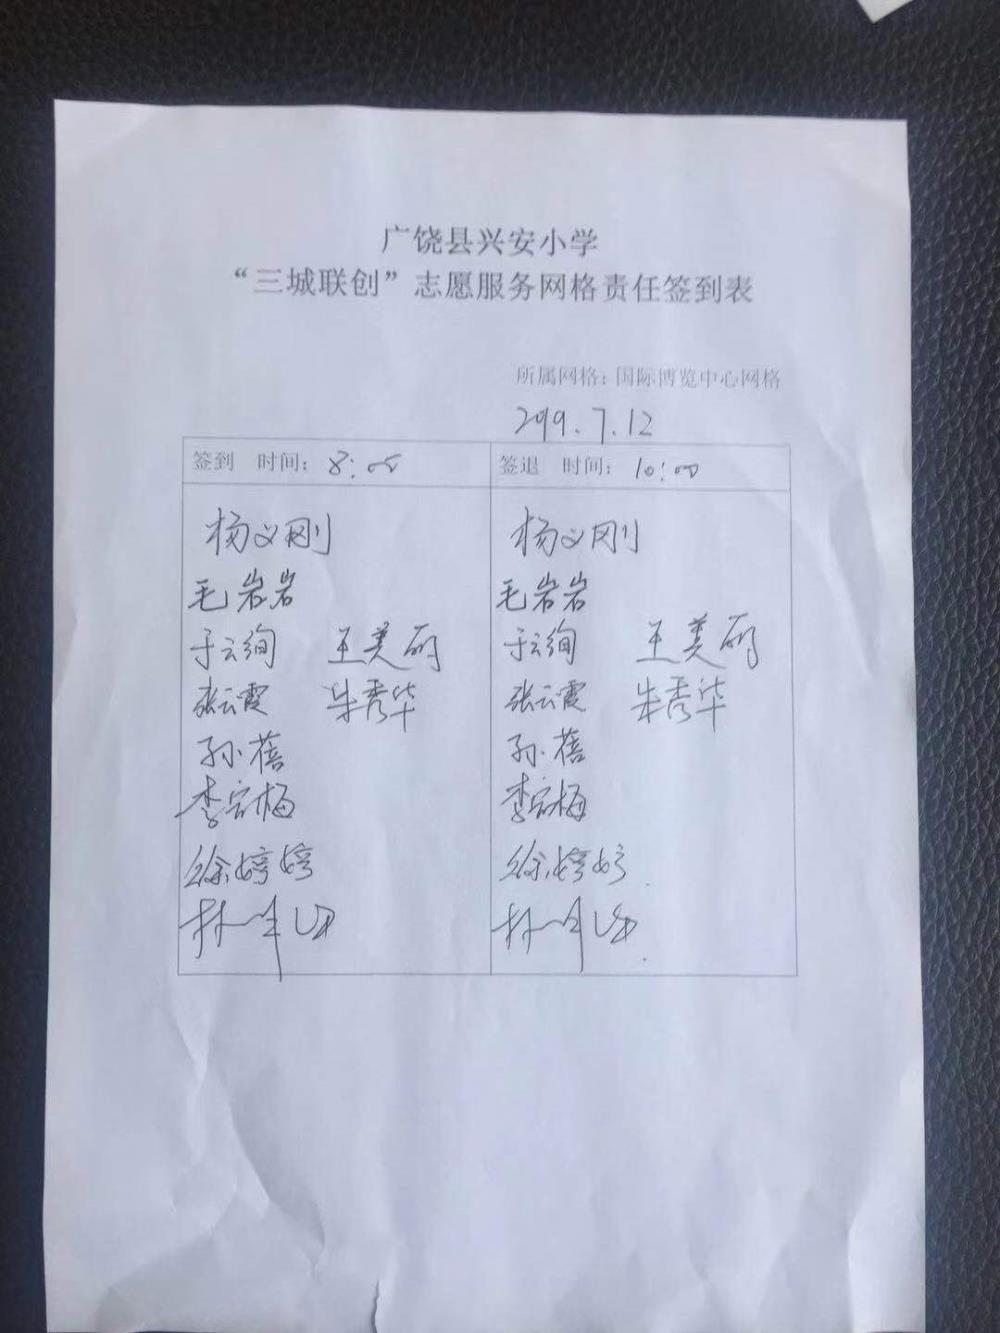 广饶县兴安小学
“三城联创”志愿服务网格责任签到表
所属网格：国际博览中心网格
2019.7.12
签到 时间：8:05
签退 时间：10:00
杨义刚 杨义刚
毛岩岩 毛岩岩
于云绚 王美丽 于云绚 王美丽
张云霞 朱秀华 张云霞 朱秀华
孙蓓 孙蓓
李宗梅 李宗梅
徐婷婷 徐婷婷